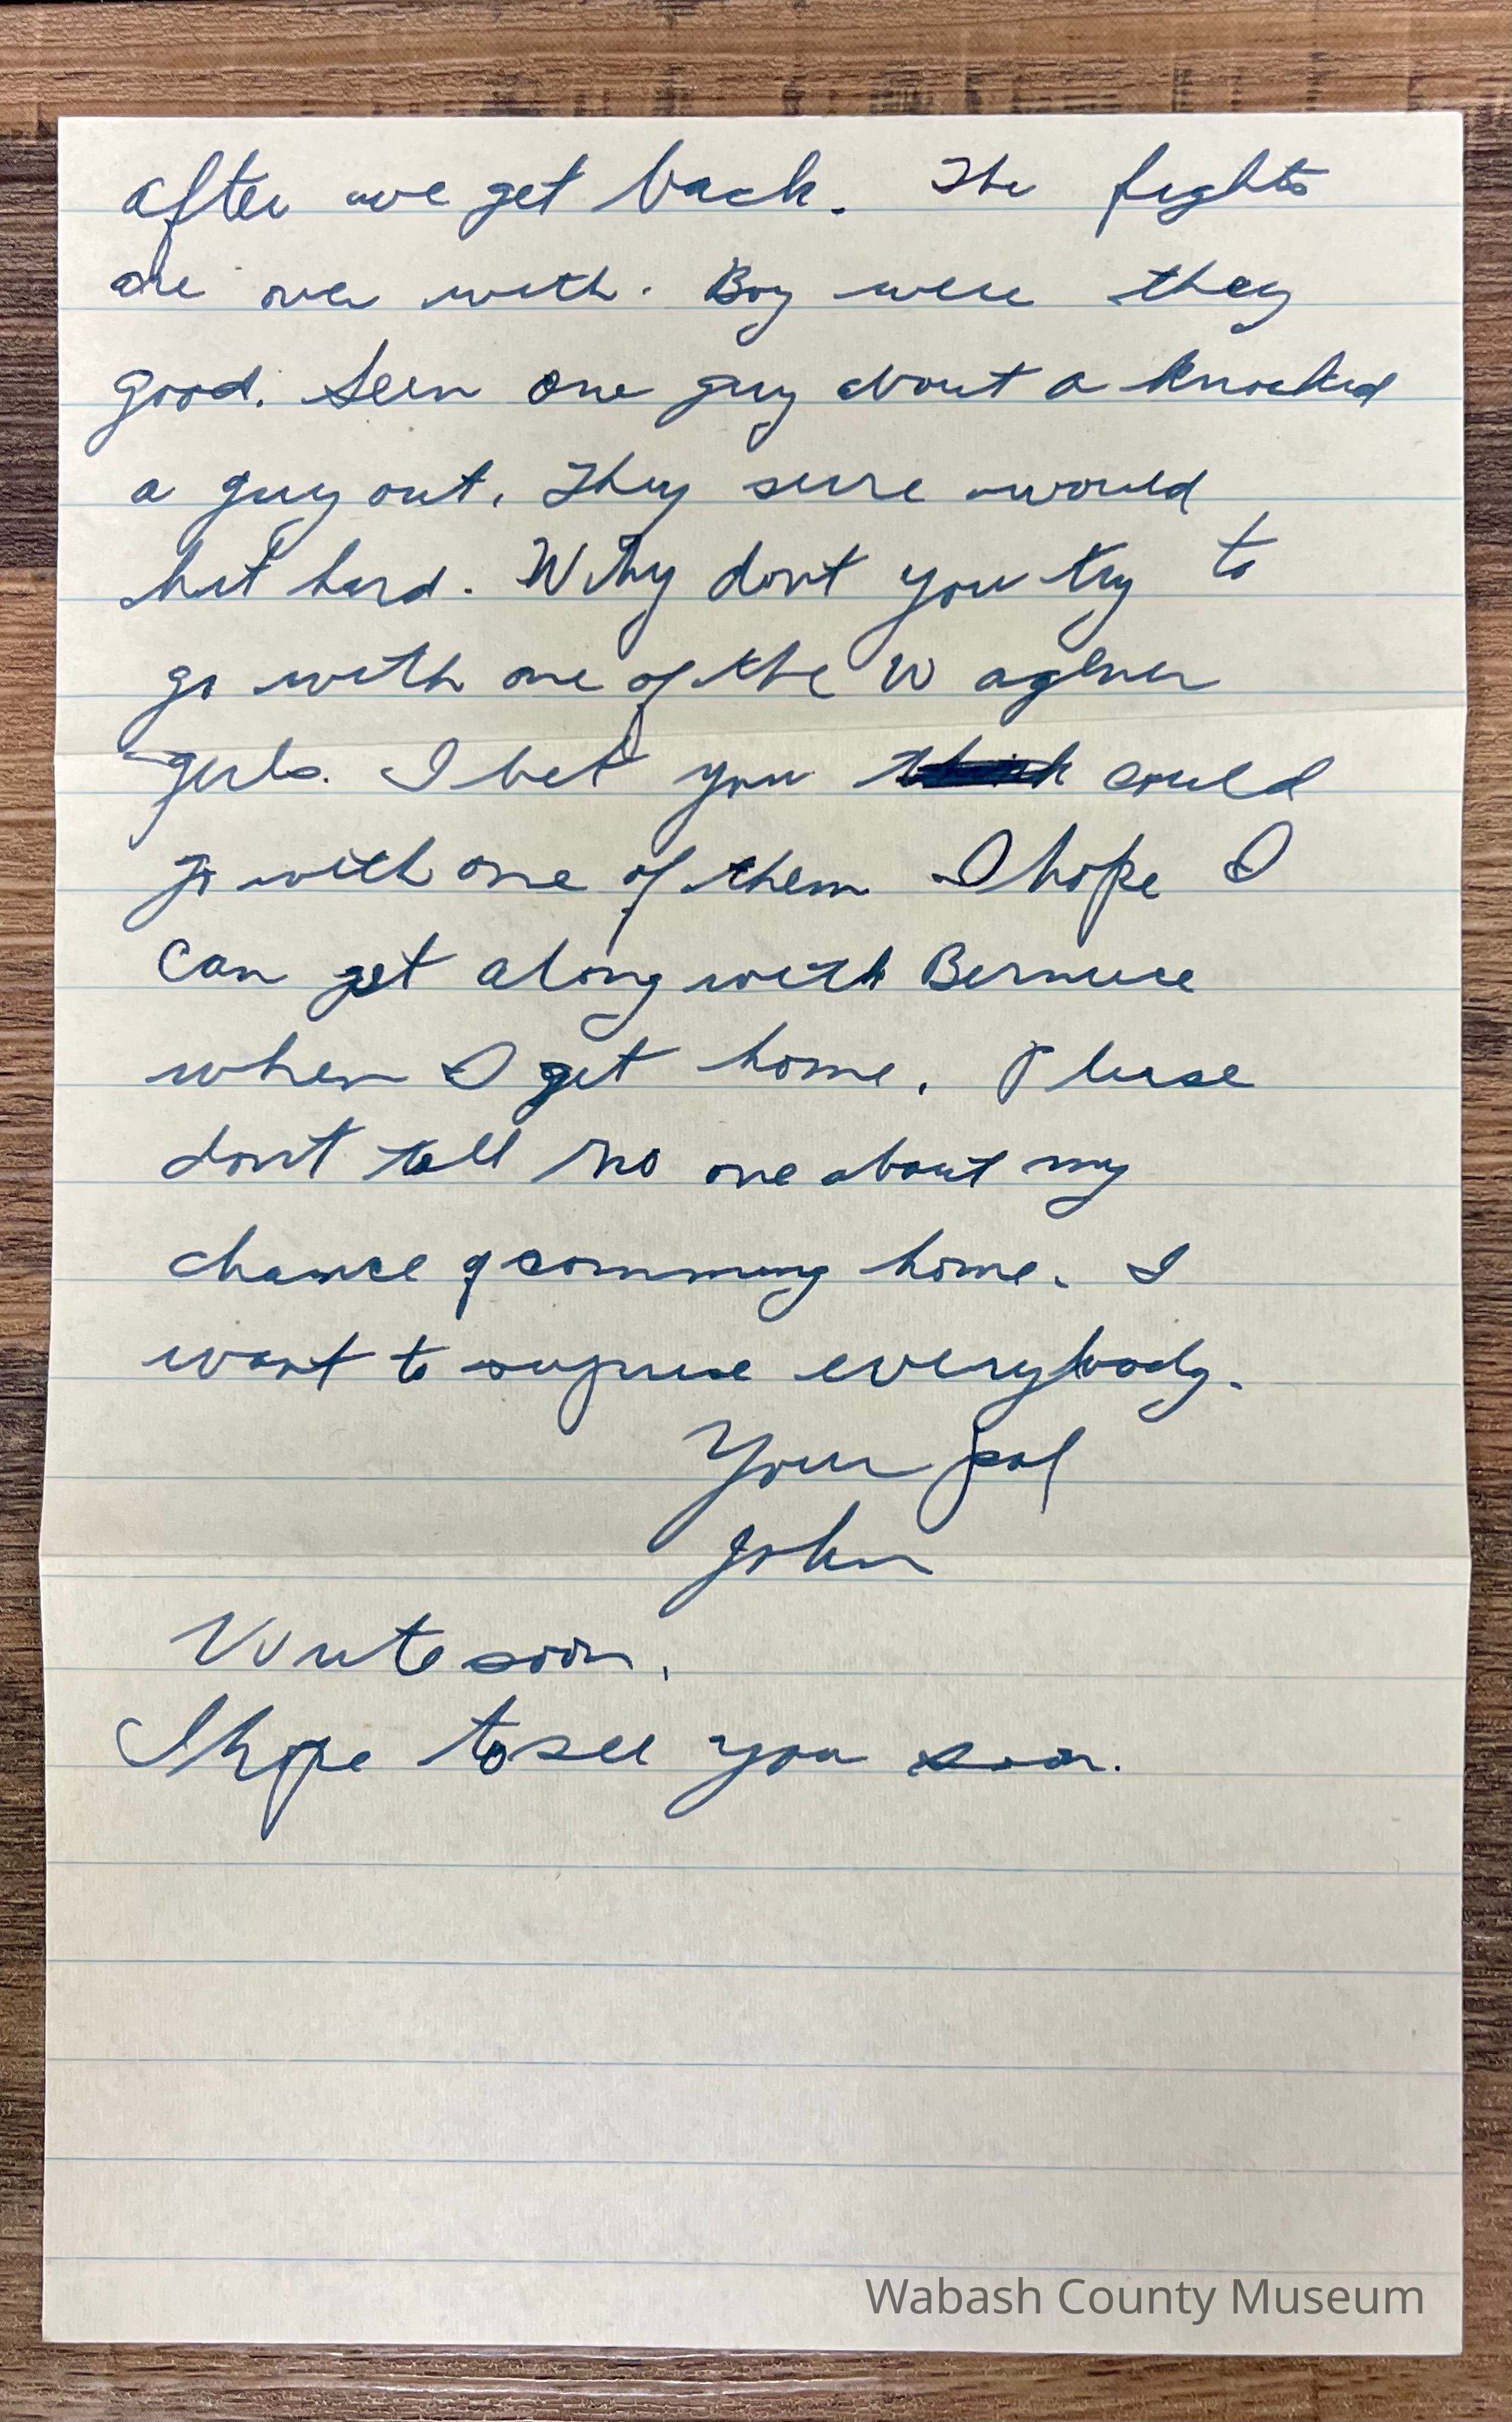 after we get back. The fights
are over with. Boy were they
good. Seen one guy about a knocked
a guy out. They sure would
hit hard. Why don't you try to
go with one of the
girls. I bet you think could
go with one of them I hope I
can get along with Bernice
when I get home. Please
dont tell no one about my
chance of comming home. I
want to suprise everybody.
Your pal
John
Write soon.
I hope to see you soon.
Wabash County Museum